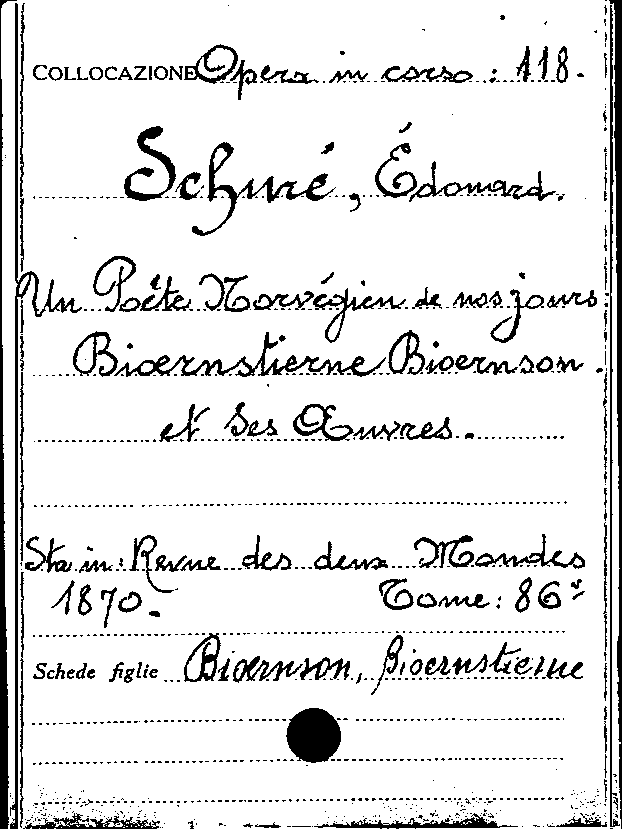 COLLOCAZIONE Opera in corso : 118.
Schuré, Édouard.
Un Poête Norvégien de nos jours:
Bioernstierne Bioernson.
et ses Œuvres.
Sta in: Revue des deux Mondes
1870. Tome: 86º
Schede figlie Bioernson, Bioernstierne